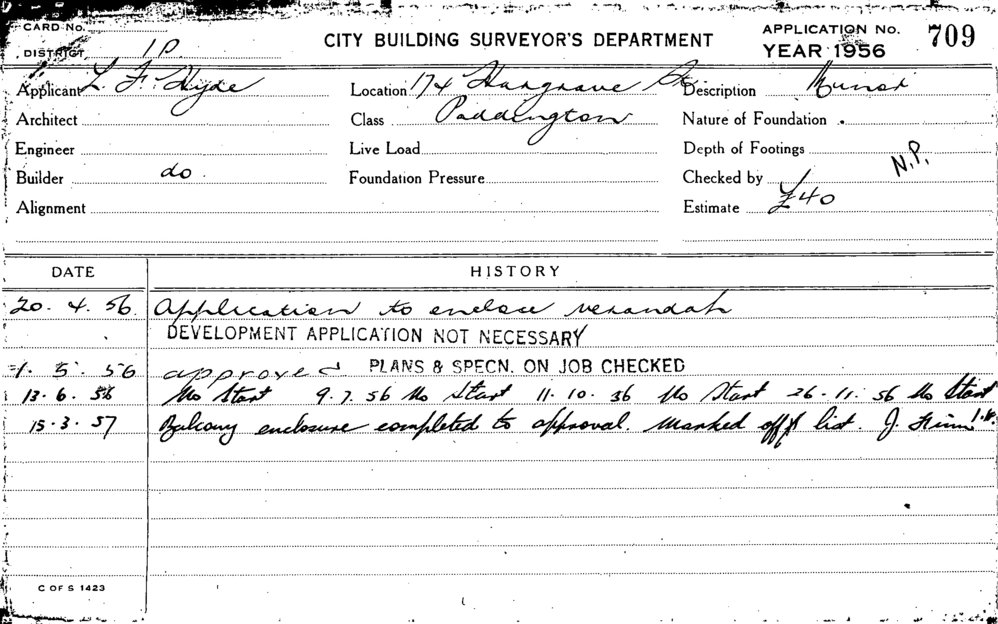 CARD No.
DISTRICT 1P
CITY BUILDING SURVEYOR'S DEPARTMENT
APPLICATION No. 709
YEAR 1956
Applicant L. F. Hyde Location 174 Hargrave St Description Minor
Architect Class Paddington Nature of Foundation
Engineer Live Load Depth of Footings
Builder do. Foundation Pressure Checked by N.P.
Alignment Estimate £40
DATE HISTORY
20. 4. 56. Application to enclose verandah
DEVELOPMENT APPLICATION NOT NECESSARY
1. 5. 56 approved PLANS & SPECN. ON JOB CHECKED
13. 6. 56 No Start 9. 7. 56 No Start 11. 10. 56 No Start 26. 11. 56 No Start
15. 3. 57 Balcony enclosure completed to approval. Marked off list. J.
C OF S 1423